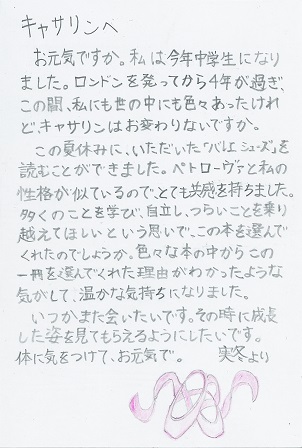 キャサリンへ
お元気ですか。私は今年中学生になり
ました。ロンドンを発ってから4年が過ぎ、
この間、私にも世の中にも色々あったけれ
ど、キャサリンはお変わりないですか。
この夏休みに、いただいた「バレエシューズ」を
読むことができました。ペトローヴァと私の
性格が似ているので、とても共感を持ちました。
多くのことを学び、自立し、つらいことを乗り
越えてほしいという思いで、この本を選んで
くれたのでしょうか。色々な本の中からこの
一冊を選んでくれた理由がわかったような
気がして、温かな気持ちになりました。
いつかまた会いたいです。その時に成長
した姿を見てもらえるようにしたいです。
体に気をつけて、お元気で。 実冬より